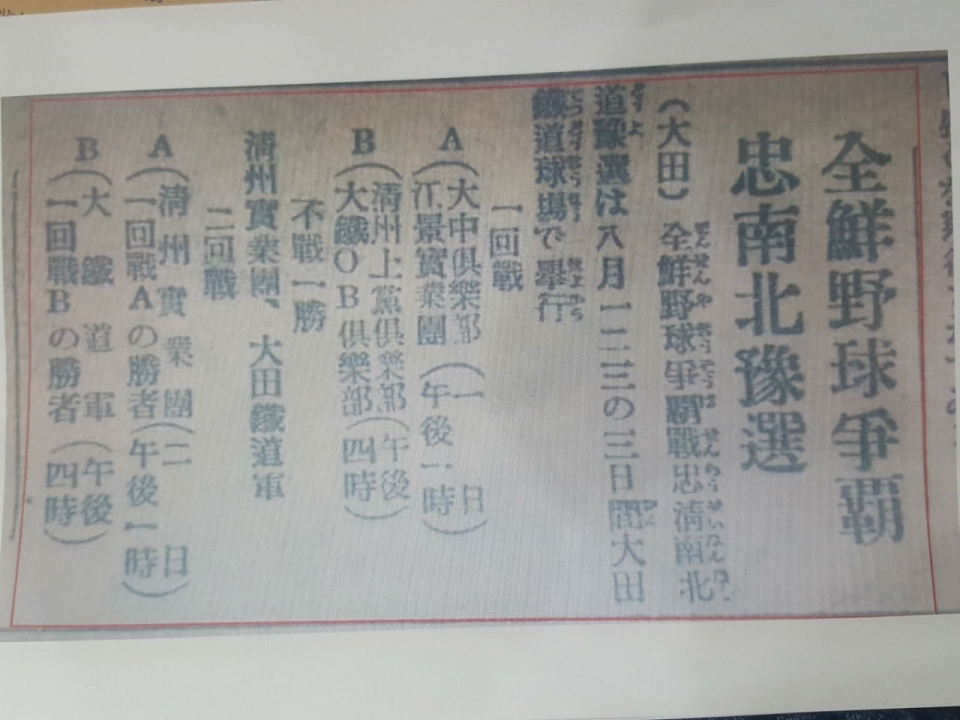 全鮮野球爭覇
忠南北豫選
(大田) 全鮮野球爭覇戰忠淸南北
道豫選は八月一二三の三日間大田
鐵道球場で擧行
一回戰
A(大中俱樂部 (一日
(江景實業團 (午後一時)
B(淸州上黨俱樂部(午後
(大鐵OB俱樂部(四時)
不戰一勝
淸州實業團、大田鐵道軍
二回戰
A(淸州實業團(二日
(一回戰Aの勝者(午後一時)
B(大鐵道軍(午後
(一回戰Bの勝者(四時)